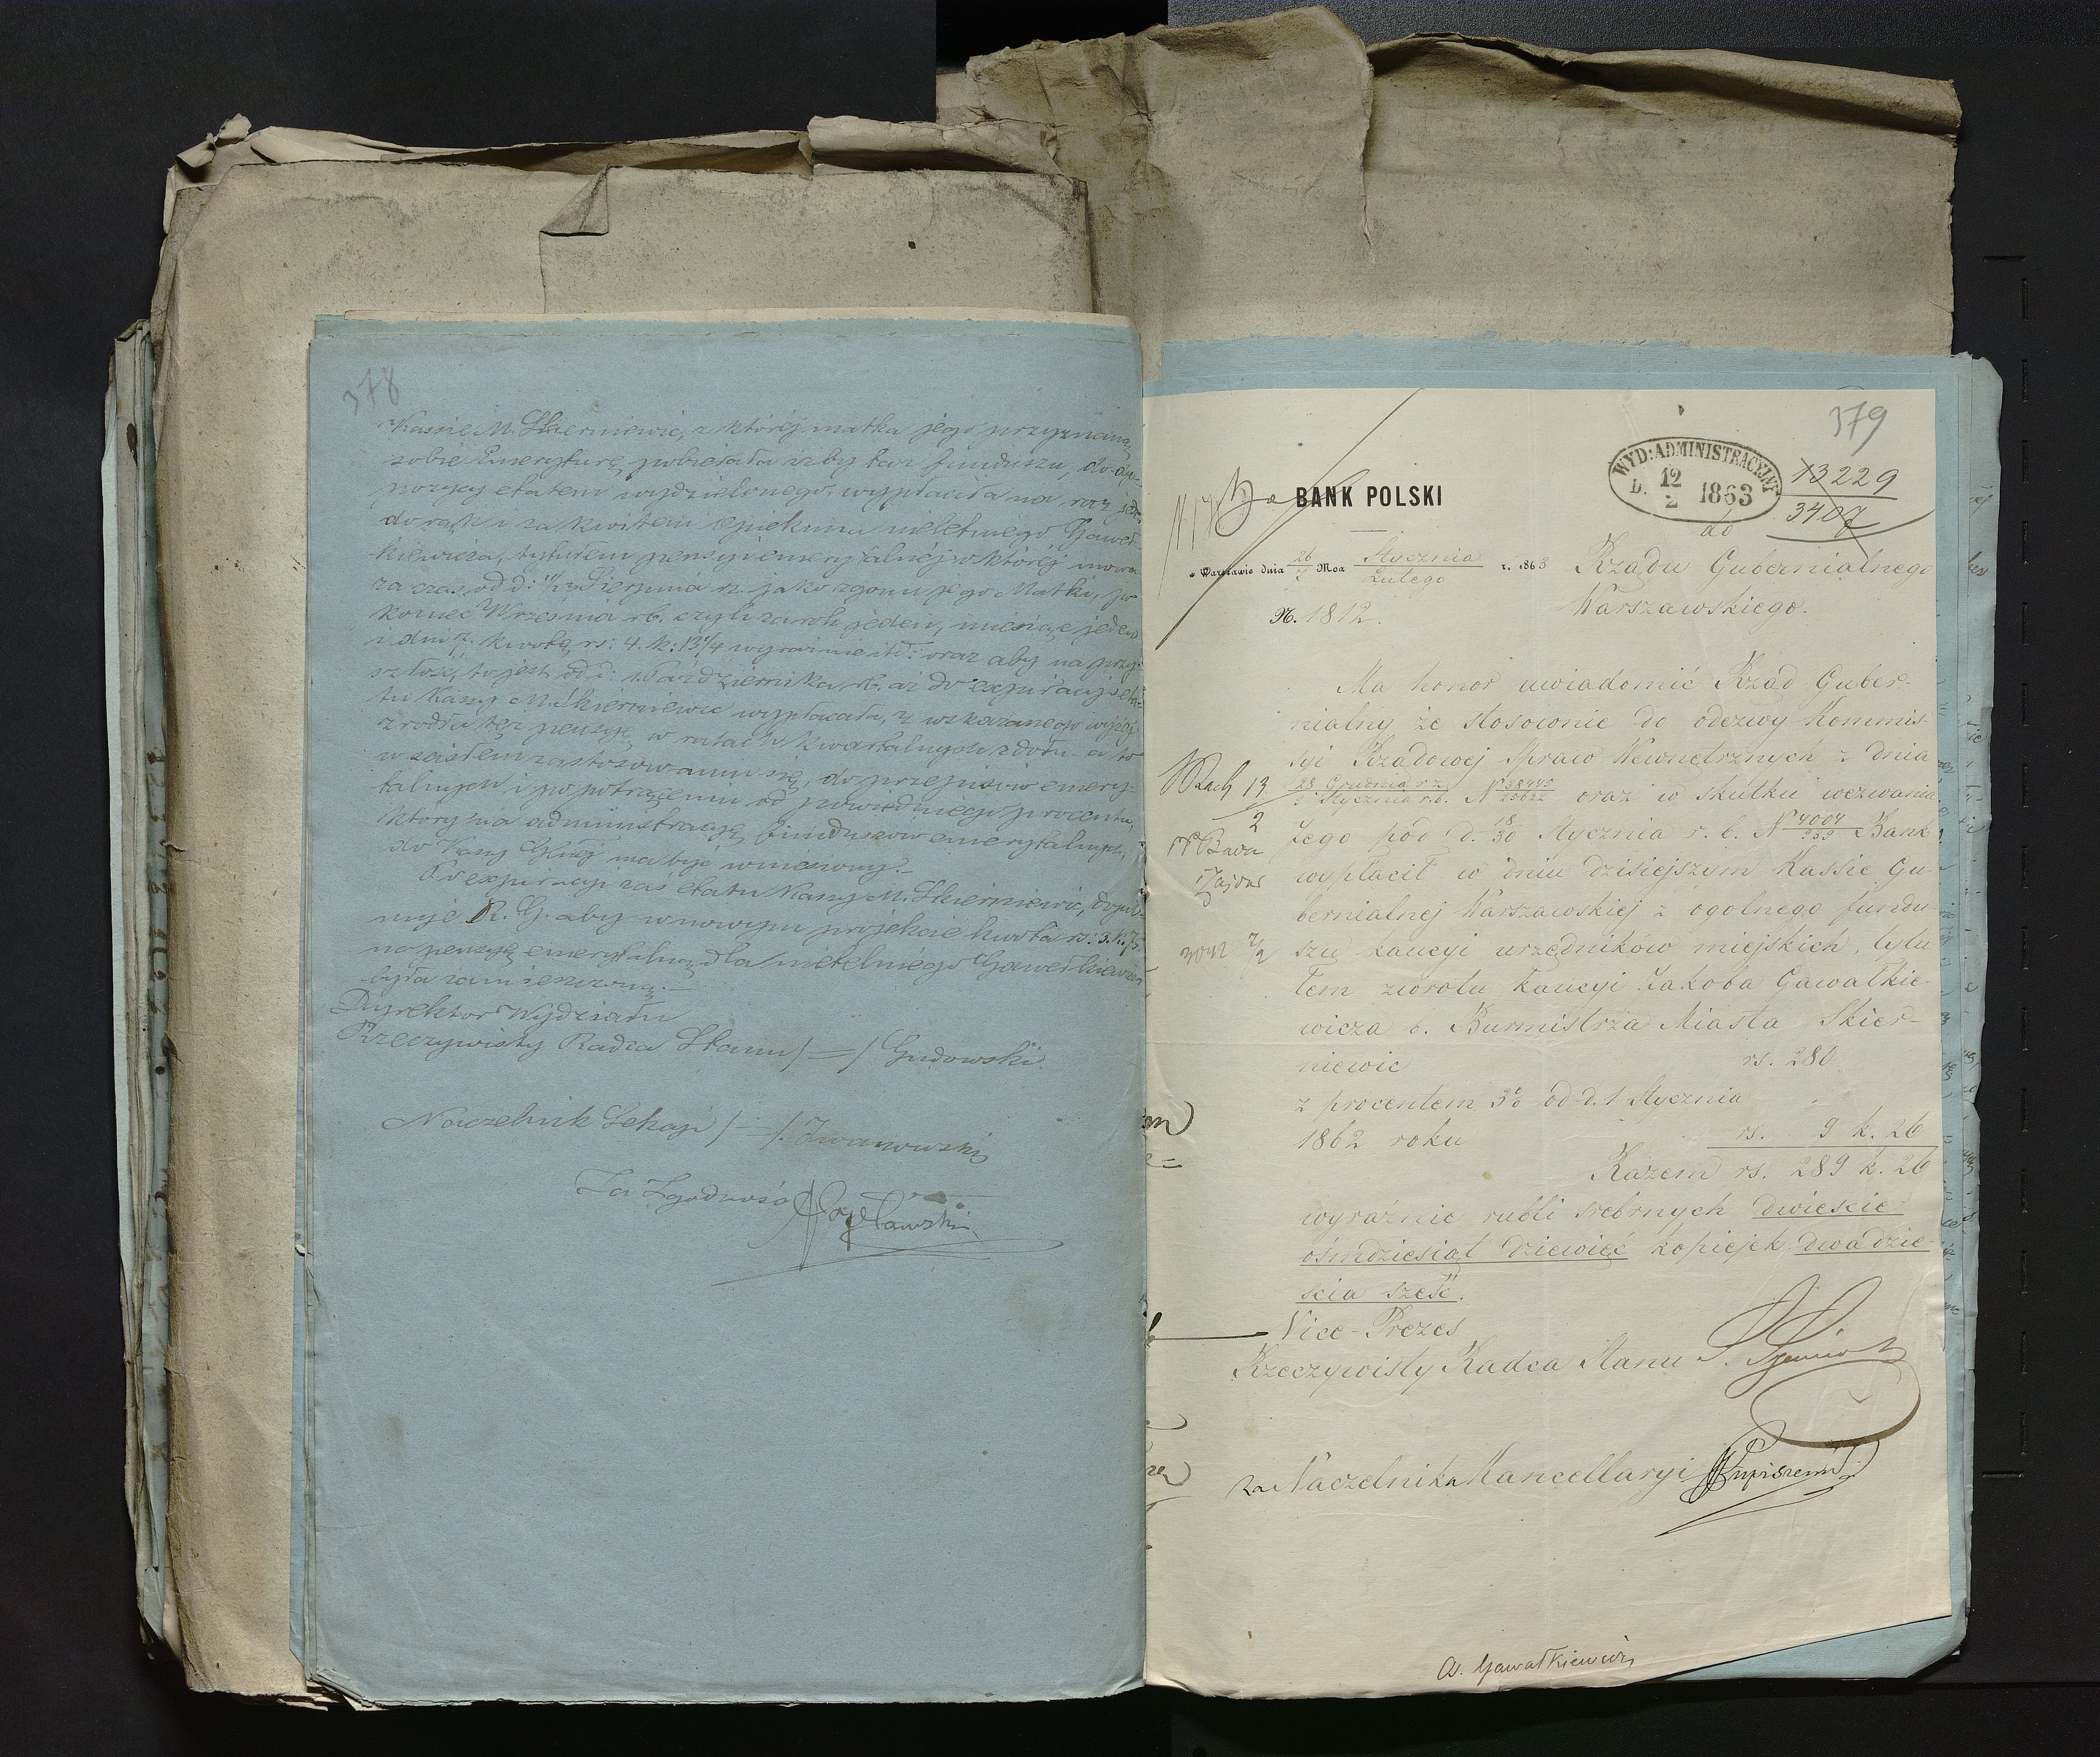 378
Kassie M. Skierniewic, z której matka jego przyznaną
sobie Emeryturę pobierała iżby taż fundusze, do dys-
pozycyi etatem wydzielonego, wypłaciła na raz
do rąk i za kwitem opiekuna nieletniego Gaweł-
kiewicza, tytułem pensyi emerytalnej w której mowa
za czas od d: Sierpnia rz. jako zgonu jego Matki, po
koniec Września rb. czyli za rok jeden, miesiąc jeden
i dni 7. kwotę rs: 4. k: 13 1/4 wyraźnie itd: oraz aby na przy-
szłość, to jest od d: 1. Października rb. aż do expiracyi eta-
tu Kassy M. Skierniewic wypłacała, z wskazanego wyżej
źrodła też pensyę w ratach kwartalnych z dołu a to
w ścisłem zastosowaniu się, do przepisów emery-
talnych i po potrąceniu odpowiedniego procentu,
który na administracyę funduszów emerytalnych,
do Kassy Głnej ma być wniesiony.-
Po expiracyi zaś etatu Kassy M. Skierniewic, dopil-
nuje R. G. aby w nowym projekcie kwota rs: 3. k. 75
na pensyę emerytalną dla nieletniego Gawełkiewicza
była zamieszczoną.-
Dyrektor Wydziału
Rzeczywisty Radca Stanu /=/ Gudowski.
Naczelnik Sekcyi /=/. Iwanowski
Za Zgodność
379
BANK POLSKI
WYD: ADMINISTRACYJNY
D. 12/2 1863
13229
3407
w Warszawie dnia 26/7 Mca Stycznia/Lutego r. 1863
do
Rządu Gubernialnego
Warszawskiego.
N. 1812.
Ma honor uwiadomić Rząd Guber-
nialny że stosownie do odezwy Kommis-
syi Rządowej Spraw Wewnętrznych z dnia
28 Grudnia r z./9 Stycznia r.b. N 38445/25622 oraz w skutku wezwania
Jego pod d. 18/30 Stycznia r. b. N 4004/959 Bank
wypłacił w dniu dzisiejszym Kassie Gu-
bernialnej Warszawskiej z ogolnego fundu-
szu kaucyi urzędnikow miejskich, tytu
łem zwrotu kaucyi Jakóba Gawałkie-
wicza b. Burmistrza Miasta Skier-
niewic rs. 280
z procentem 3% od d. 1 Stycznia
1862 roku rs. 9 k. 26
Razem rs. 289 k. 26
wyraźnie rubli srebrnych dwieście
ośmdziesiąt dziewięć kopiejek dwadzie-
ścia sześć.
Vice-Prezes
Rzeczywisty Radca Stanu
za Naczelnika Kancellaryi
13
2
3042 7/2
a. Gawałkiewicz